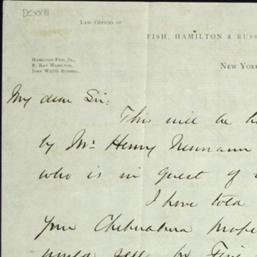 LAW OFFICES OF
FISH, HAMILTON & RUSS
HAMILTON FISH, JR.,
R. RAY HAMILTON,
JOHN WATTS RUSSELL.
NEW YORK
My dear Sir:
This will be h
by Mr Henry Neumann
who is in quest of
I have told
your Chihuahua prope
would sell for Five